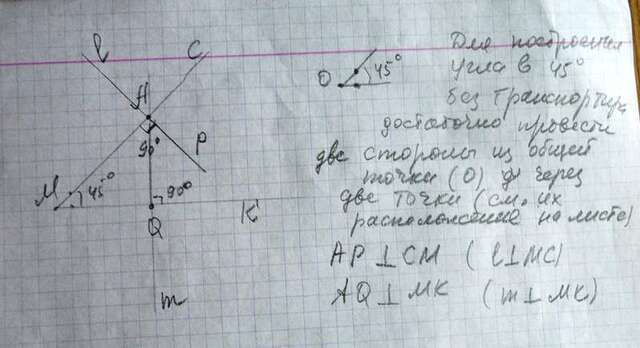 l
C
A
90°
P
M
45°
90°
Q
K
m
O
45°
Для построения
угла в 45°
без транспортира
достаточно провести
две стороны из общей
точки (О) через
две точки (см. их
расположение на листе)
AP ⊥ CM ( l ⊥ MC )
AQ ⊥ MK ( m ⊥ MK )